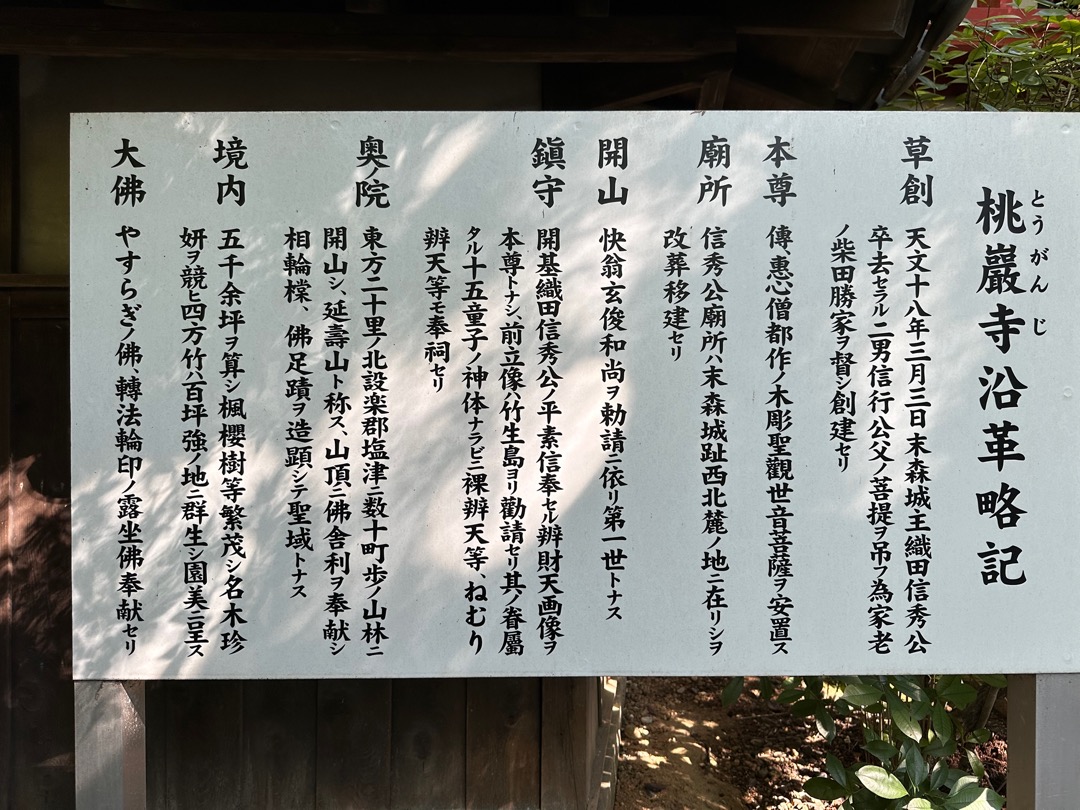 桃巖寺沿革略記
とうがんじ
草創
天文十八年三月三日末森城主織田信秀公
卒去セラル二男信行公父ノ菩提ヲ吊フ為家老
ノ柴田勝家ヲ督シ創建セリ
本尊
傳、惠心僧都作ノ木彫聖觀世音菩薩ヲ安置ス
廟所
信秀公廟所ハ末森城趾西北麓ノ地ニ在リシヲ
改葬移建セリ
開山
快翁玄俊和尚ヲ勅請ニ依リ第一世トナス
鎭守
開基織田信秀公ノ平素信奉セル辨財天画像ヲ
本尊トナシ、前立像ハ竹生島ヨリ勸請セリ其ノ眷屬
タル十五童子ノ神体ナラビニ裸辨天等、ねむり
辨天等モ奉祠セリ
奥ノ院
東方二十里ノ北設楽郡塩津ニ数十町歩ノ山林ニ
開山シ、延壽山ト称ス、山頂ニ佛舎利ヲ奉献シ
相輪樘、佛足蹟ヲ造顕シテ聖域トナス
境内
五千余坪ヲ算シ楓櫻樹等繁茂シ名木珍
妍ヲ競ヒ四方竹ハ百坪強ノ地ニ群生シ園美ニ呈ス
大佛
やすらぎノ佛、轉法輪印ノ露坐佛奉献セリ